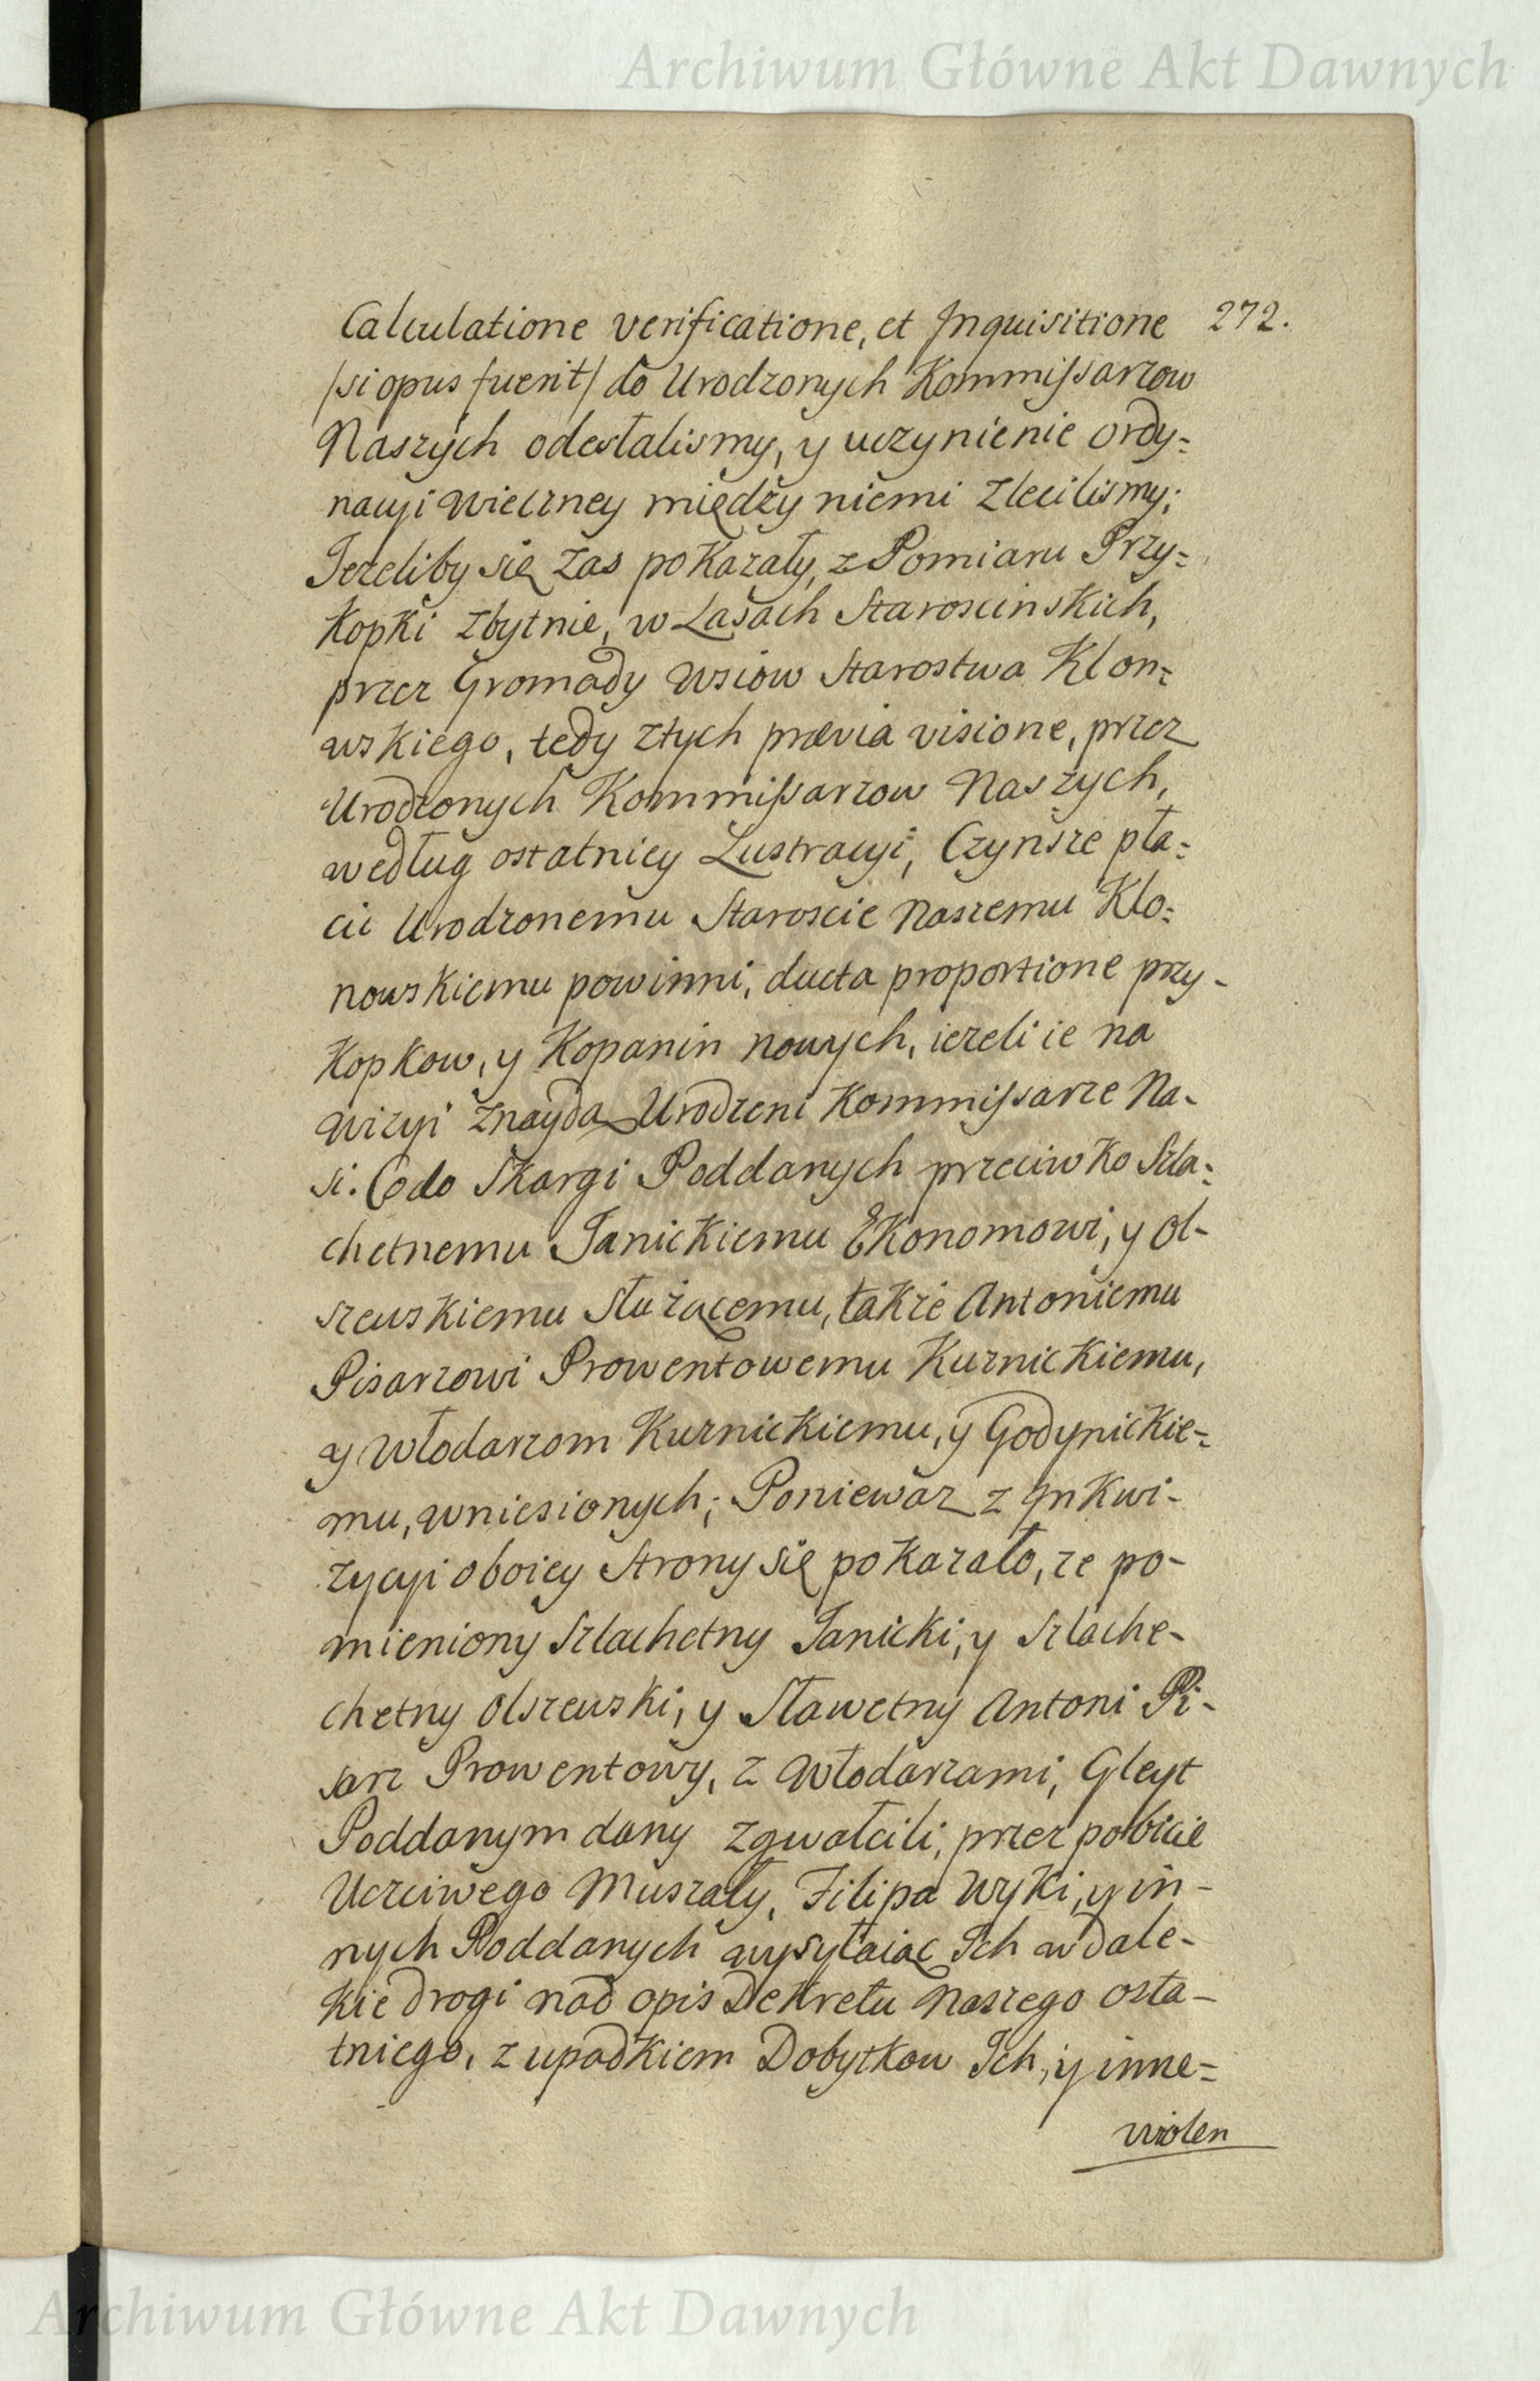 Archiwum Główne Akt Dawnych
272.
Calculatione verificatione, et Inquisitione
/si opus fuerit/ do Urodzonych Kommissarzow
Naszych odesłalismy, y uczynienie ordy=
nacyi wieczney między niemi zlecilismy;
Jezeliby się zas pokazały, z Pomiaru Przy=
kopki zbytnie, w Lasach Staroscinskich,
przez Gromady wsiow Starostwa Klon=
wskiego, tedy ztych prævia visione, przez
Urodzonych Kommissarzow Naszych,
według ostatniey Lustracyi, Czynsze pła=
cić Urodzonemu Staroscie Naszemu Klo=
nowskiemu powinni, ducta proportione przy-
kopkow, y Kopanin nowych, iezeli ie na
wizyi znaydą Urodzeni Kommissarze Na-
si. Co do Skargi Poddanych przeciwko Szla=
chetnemu Janickiemu Ekonomowi, y Ol-
szewskiemu Służącemu, także Antoniemu
Pisarzowi Prowentowemu Kuznickiemu,
y Włodarzom Kuznickiemu, y Godynickie=
mu, wniesionych; Ponieważ z Inkwi-
zycyi oboiey Strony się pokazało, ze po-
mieniony Szlachetny Janicki, y Szlache-
chetny Olszewski, y Sławetny Antoni Pi-
sarz Prowentowy, z Włodarzami, Gleyt
Poddanym dany zgwałcili, przez pobicie
Uczciwego Muszały, Filipa Wyki, y in-
nych Poddanych wysyłaiąc Ich w dale-
kie drogi nad opis Dekretu Naszego osta-
tniego, z upadkiem Dobytkow Ich, y inne=
violen
Archiwum Główne Akt Dawnych